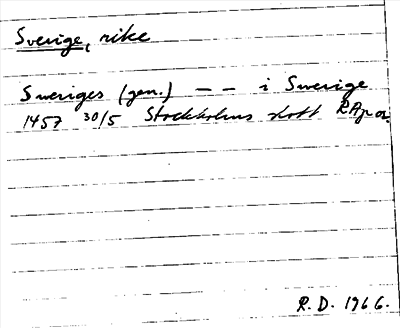 Sverige, rike
Sweriges (gen.) — — i Swerige
1457 30/5 Stockholms slott RAp or.
R. D. 1966.